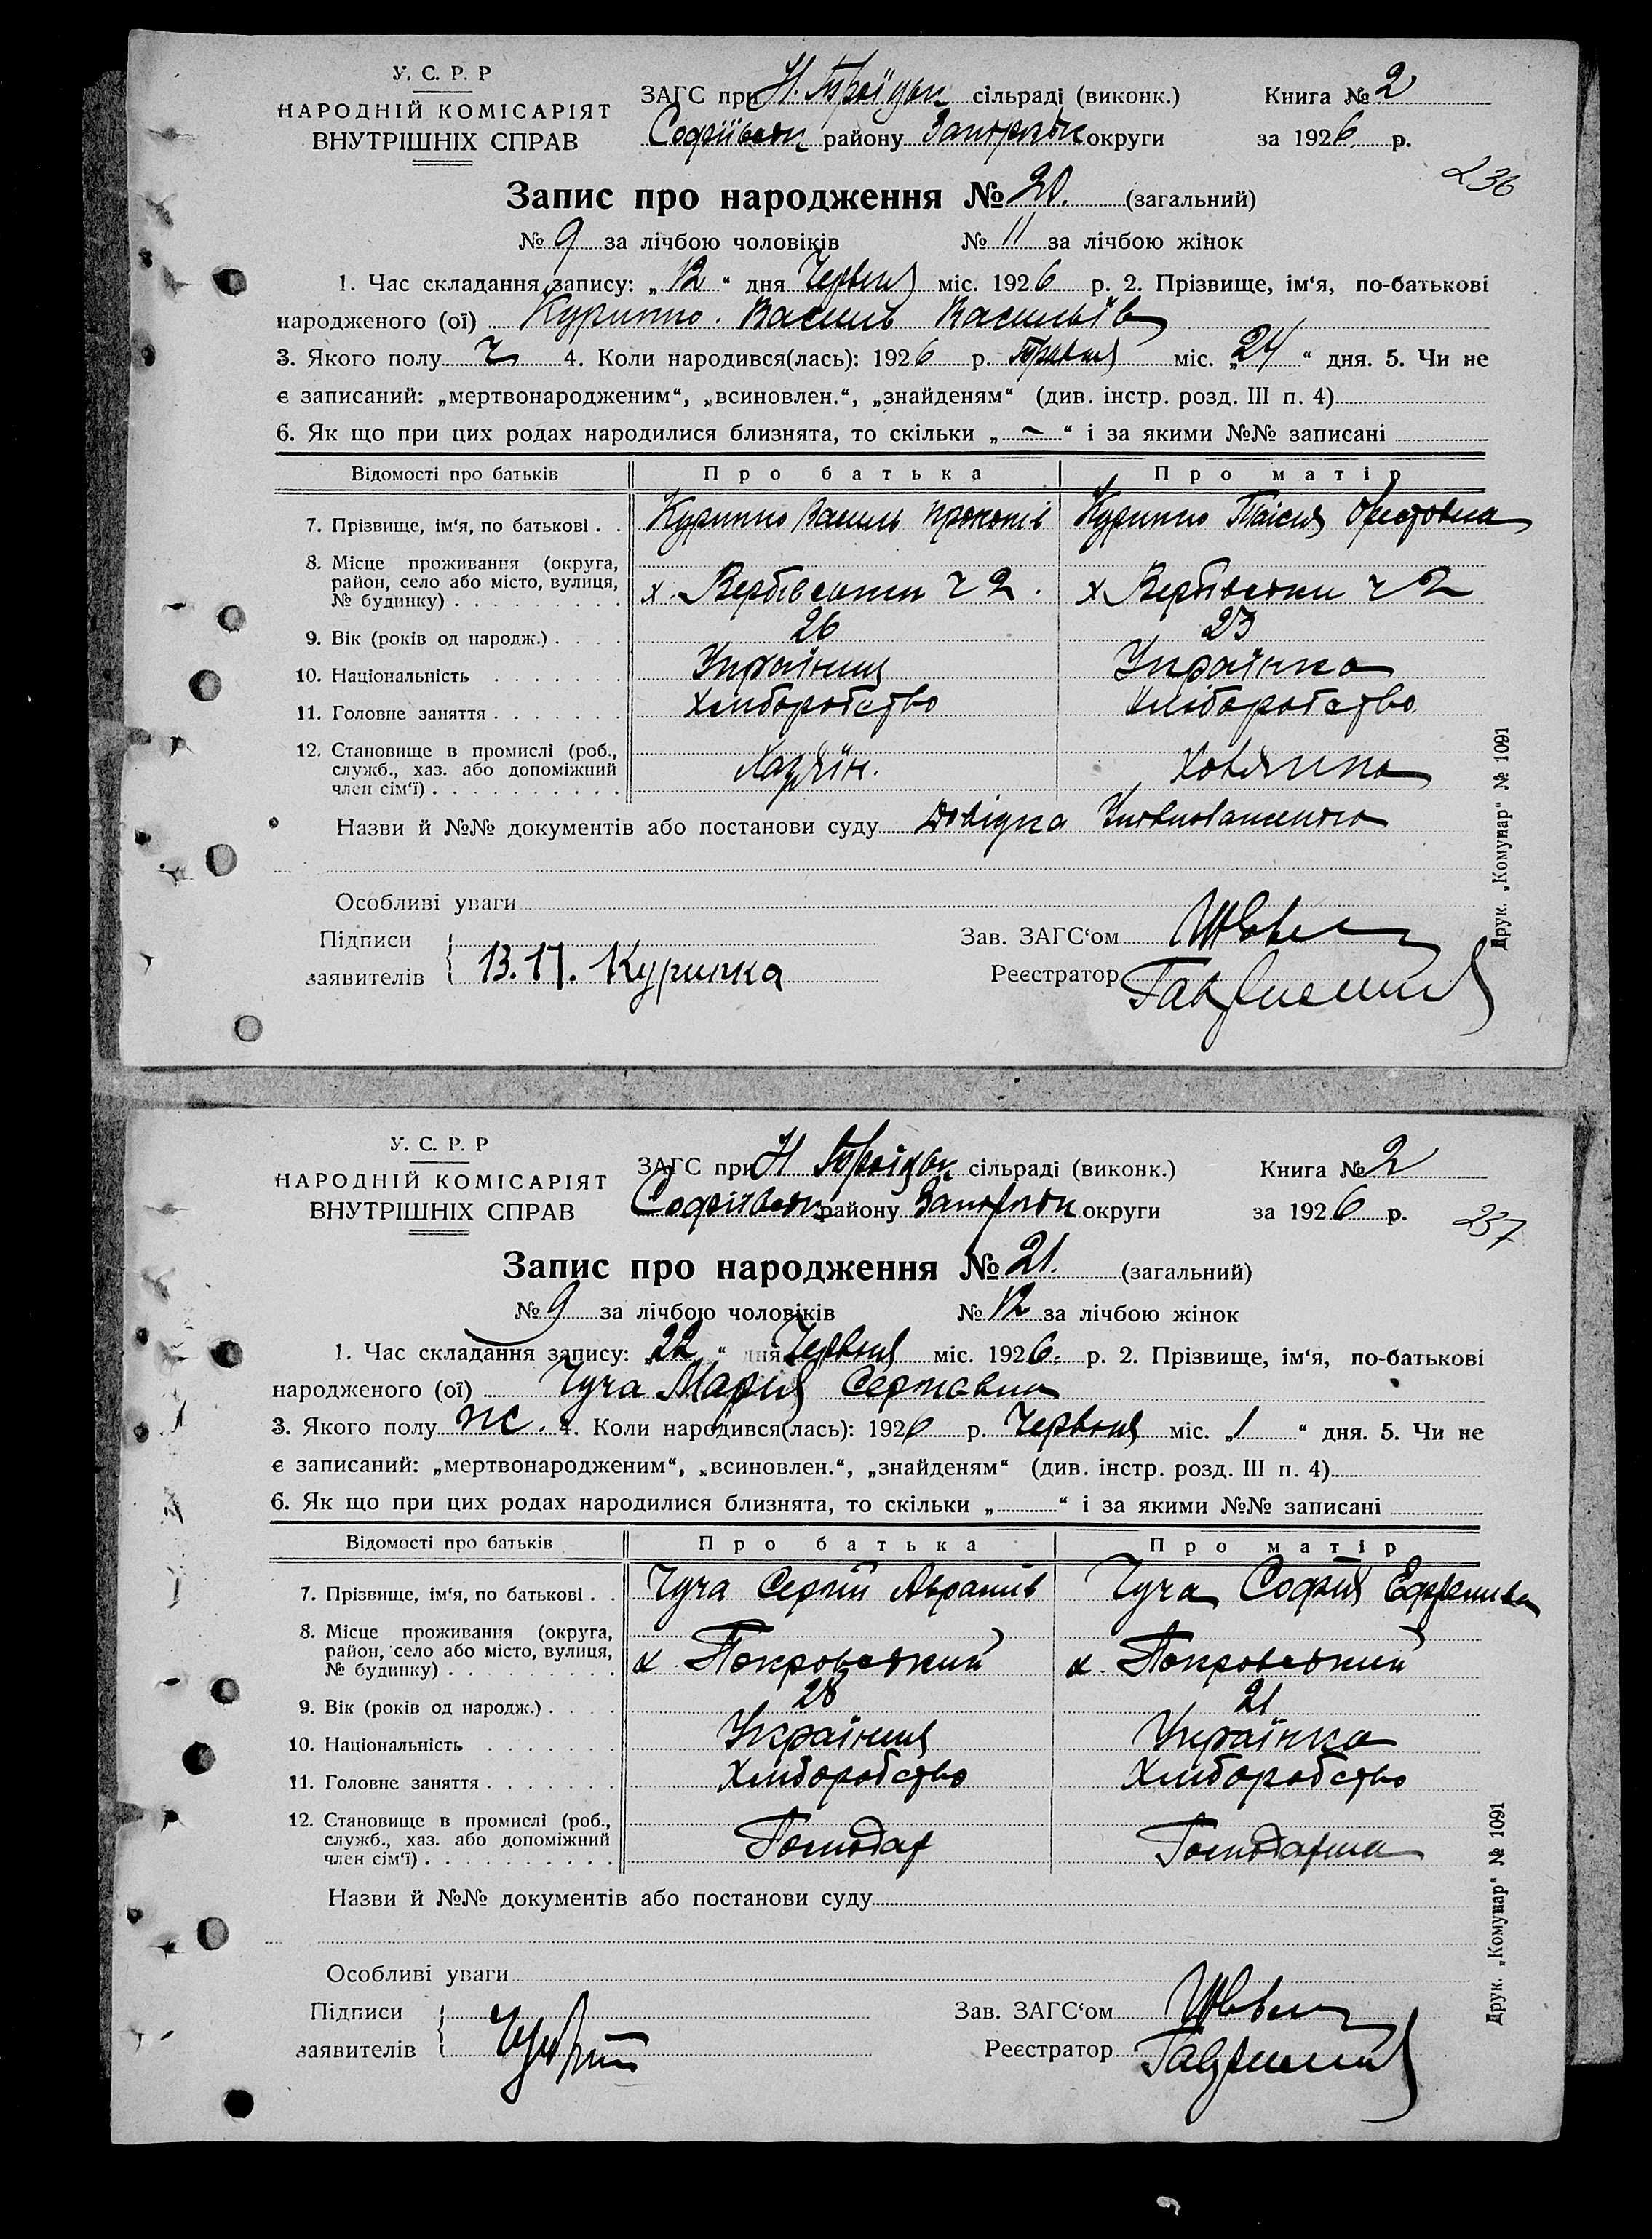 У. С. Р. Р
НАРОДНІЙ КОМІСАРІЯТ
ВНУТРІШНІХ СПРАВ
ЗАГС при Н. Троїцьк сільраді (виконк.) Книга № 2
Софіївськ району Запорізьк округи за 1926 р.
236
Запис про народження № 20. (загальний)
№ 9 за лічбою чоловіків № 11 за лічбою жінок
1. Час складання запису: „12“ дня Червня міс. 1926 р. 2. Прізвище, ім‘я, по-батькові
народженого (ої) Курипко. Василь Васильїв
3. Якого полу ч 4. Коли народився(лась): 1926 р. Травня міс. „24“ дня. 5. Чи не
є записаний: „мертвонародженим“, „всиновлен.“, „знайденям“ (див. інстр. розд. III п. 4)
6. Як що при цих родах народилися близнята, то скільки „-“ і за якими №№ записані
Відомості про батьків Про батька Про матір
7. Прізвище, ім‘я, по батькові . . Курипко Василь Прокопів Курипко Таісия Орестовна
8. Місце проживання (округа,
район, село або місто, вулиця,
№ будинку) . . . . . . . . . х. Вербівський ч 2. х Вербівський ч 2
9. Вік (років од народж.) . . . . 26 23
10. Національність . . . . . . . Українця Українка
11. Головне заняття . . . . . . . Хліборобство Хліборобство
12. Становище в промислі (роб.,
служб., хаз. або допоміжний
член сім‘ї) . . . . . . . . . . Хазяїн. Ховяйка
Назви й №№ документів або постанови суду Довідка Уповноваженого
Особливі уваги
Підписи
заявителів В. П. Курипка
Зав. ЗАГС‘ом
Реєстратор
Друк. „Комунар“ № 1091
У. С. Р. Р
НАРОДНІЙ КОМІСАРІЯТ
ВНУТРІШНІХ СПРАВ
ЗАГС при Н Троїцьк сільраді (виконк.) Книга № 2
Софіївськ району Запорізьк округи за 1926 р.
237
Запис про народження № 21. (загальний)
№ 9 за лічбою чоловіків № 12 за лічбою жінок
1. Час складання запису: „22“ дня Червня міс. 1926. р. 2. Прізвище, ім‘я, по-батькові
народженого (ої) Чуча Мария Сергіевна
3. Якого полу ж. 4. Коли народився(лась): 1926 р. Червня міс. „1“ дня. 5. Чи не
є записаний: „мертвонародженим“, „всиновлен.“, „знайденям“ (див. інстр. розд. III п. 4)
6. Як що при цих родах народилися близнята, то скільки „“ і за якими №№ записані
Відомості про батьків Про батька Про матір
7. Прізвище, ім‘я, по батькові . . Чуча Сергій Абрамів Чуча София
8. Місце проживання (округа,
район, село або місто, вулиця,
№ будинку) . . . . . . . . . х. Покровський х. Покровський
9. Вік (років од народж.) . . . . 28 21
10. Національність . . . . . . . Українця Українка
11. Головне заняття . . . . . . . Хліборобство Хліборобство
12. Становище в промислі (роб.,
служб., хаз. або допоміжний
член сім‘ї) . . . . . . . . . . Господар Господарша
Назви й №№ документів або постанови суду
Особливі уваги
Підписи
заявителів
Зав. ЗАГС‘ом
Реєстратор
Друк. „Комунар“ № 1091